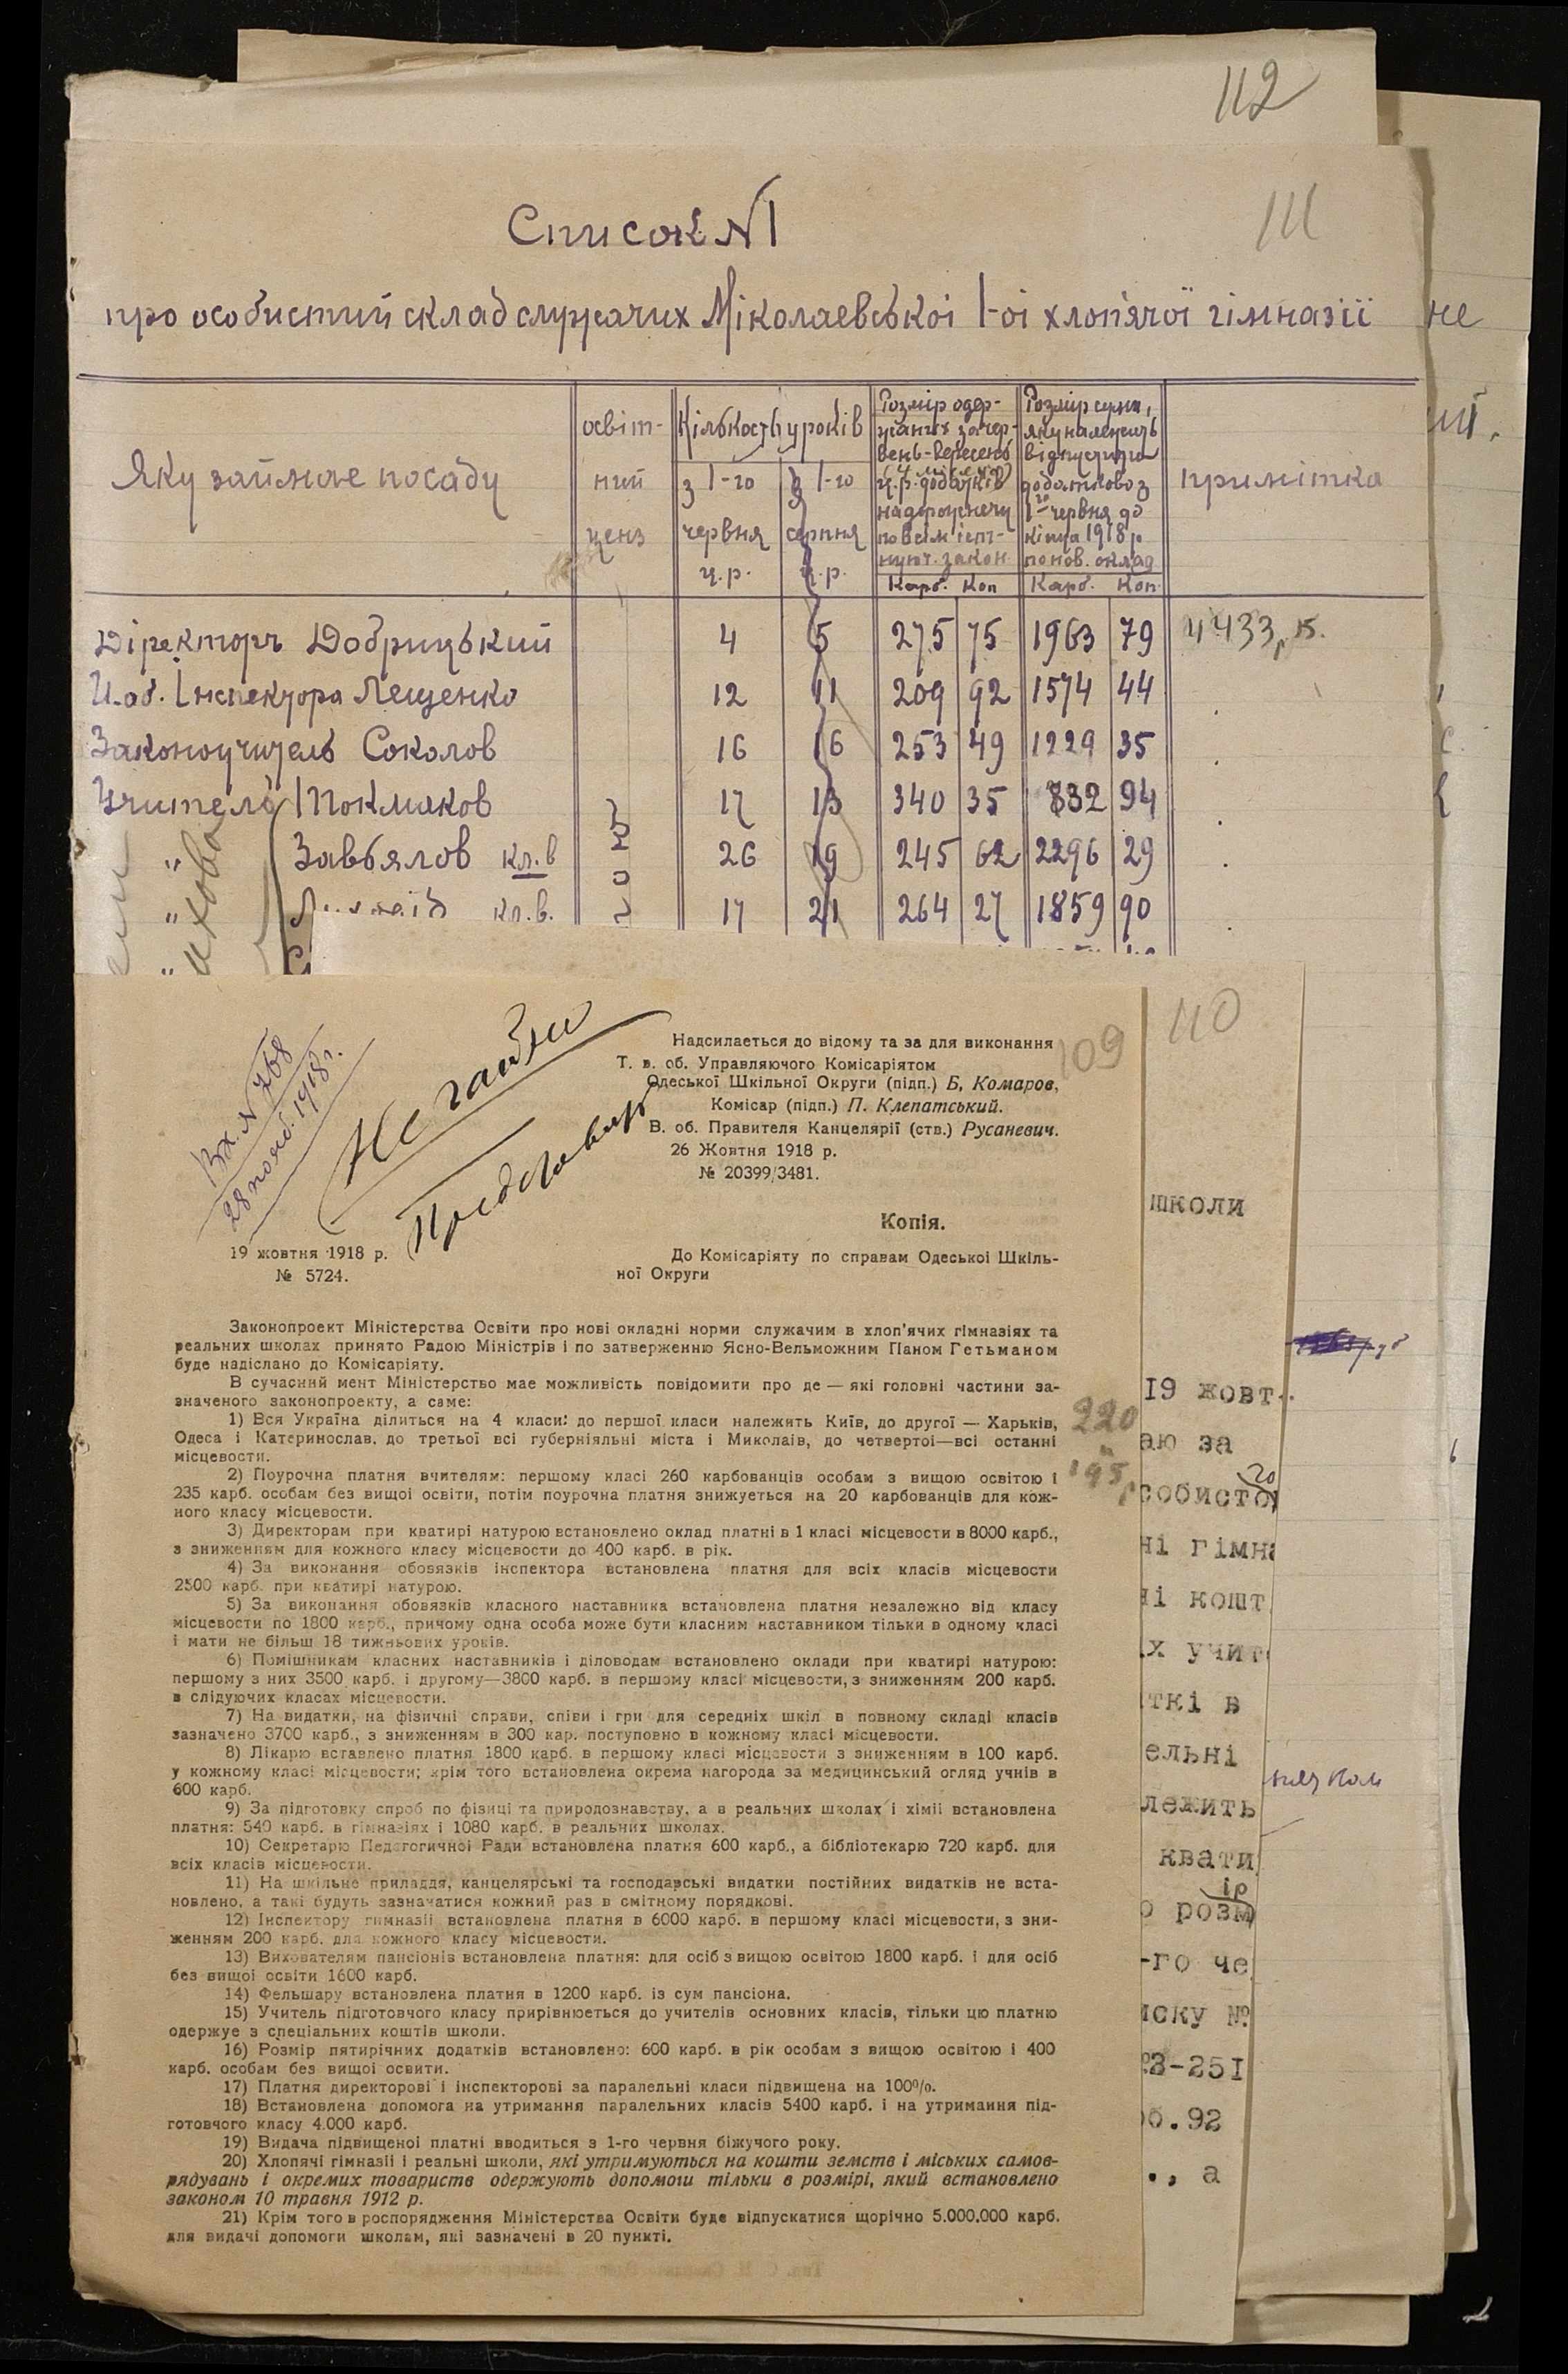 112
111
Список №1
про особистий склад служачих Міколаевськоі 1-оі хлопячоі гімназіі
не
Яку займае посаду
освіт-
ний
ценз
Кількость уроків
з 1-го
червня
ц.р.
з 1-го
серпня
ц.р.
Розмір одер-
жаних за чер-
вень-вересень
(4 місяця)
ц.р. додатків
на дорожнечу
по всім іст-
нуюч. закон.
Карб. Коп
Розмір суми,
яку належить
відпустити
додатково з
1го червня до
кінця 1918 р
по нов. оклад
Карб. Коп.
примітка
Діректоръ Добрицький 4 5 275 75 1963 79 4433, к.
И.об. Інспектора Лещенко 12 11 209 92 1574 44
Законоучитель Соколов 16 16 253 49 1229 35
Учитель Токмаков 17 13 340 35 832 94
" Завьялов кл.в 26 19 245 62 2296 29
" кл.в. 17 21 264 27 1859 90
"
110
109
Вх. № 768
28 нояб. 1918 г.
Не гайно
Надсилаеться до відому та за для виконання
Т. в. об. Управляючого Комісаріятом
Одеської Шкільної Округи (підп.) Б. Комаров,
Комісар (підп.) П. Клепатський.
В. об. Правителя Канцелярії (ств.) Русаневич.
26 Жовтня 1918 р.
№ 20399/3481.
Копія.
19 жовтня 1918 р.
№ 5724.
До Комісаріяту по справам Одеської Шкіль-
ної Округи
Законопроект Міністерства Освіти про нові окладні норми служачим в хлоп'ячих гімназіях та
реальних школах принято Радою Міністрів і по затверженню Ясно-Вельможним Паном Гетьманом
буде надіслано до Комісаріяту.
В сучасний мент Міністерство мае можливість повідомити про де — які головні частини за-
значеного законопроекту, а саме:
1) Вся Україна ділиться на 4 класи: до першої класи належить Київ, до другої — Харьків,
Одеса і Катеринослав, до третьої всі губерніяльні міста і Миколаів, до четвертоі—всі останні
місцевости.
2) Поурочна платня вчителям: першому класі 260 карбованців особам з вищою освітою і
235 карб. особам без вищоі освіти, потім поурочна платня знижуеться на 20 карбованців для кож-
ного класу місцевости.
3) Директорам при кватирі натурою встановлено оклад платні в 1 класі місцевости в 8000 карб.,
з зниженням для кожного класу місцевости до 400 карб. в рік.
4) За виконання обовязків інспектора встановлена платня для всіх класів місцевости
2500 карб. при кватирі натурою.
5) За виконання обовязків класного наставника встановлена платня незалежно від класу
місцевости по 1800 карб., причому одна особа може бути класним наставником тільки в одному класі
і мати не більш 18 тижньових уроків.
6) Помішникам класних наставників і діловодам встановлено оклади при кватирі натурою:
першому з них 3500 карб. і другому—3800 карб. в першому класі місцевости, з зниженням 200 карб.
в слідуючих класах місцевости.
7) На видатки, на фізичні справи, співи і гри для середніх шкіл в повному складі класів
зазначено 3700 карб., з зниженням в 300 кар. поступовно в кожному класі місцевости.
8) Лікарю вставлено платня 1800 карб. в першому класі місцевости з зниженням в 100 карб.
у кожному класі місцевости; крім того встановлена окрема нагорода за медицинський огляд учнів в
600 карб.
9) За підготовку спроб по фізиці та природознавству, а в реальних школах і хімії встановлена
платня: 540 карб. в гімназіях і 1080 карб. в реальних школах.
10) Секретарю Педагогичної Ради встановлена платня 600 карб., а бібліотекарю 720 карб. для
всіх класів місцевости.
11) На шкільне приладдя, канцелярські та господарські видатки постійних видатків не вста-
новлено, а такі будуть зазначатися кожний раз в смітному порядкові.
12) Інспектору гимназії встановлена платня в 6000 карб. в першому класі місцевости, з зни-
женням 200 карб. для кожного класу місцевости.
13) Вихователям пансіонів встановлена платня: для осіб з вищою освітою 1800 карб. і для осіб
без вищоі освіти 1600 карб.
14) Фельшару встановлена платня в 1200 карб. із сум пансіона.
15) Учитель підготовчого класу прирівнюеться до учителів основних класів, тільки цю платню
одержуе з спеціальних коштів школи.
16) Розмір пятирічних додатків встановлено: 600 карб. в рік особам з вищою освітою і 400
карб. особам без вищоі освити.
17) Платня директорові і інспекторові за паралельні класи підвищена на 100%.
18) Встановлена допомога на утримання паралельних класів 5400 карб. і на утримання під-
готовчого класу 4.000 карб.
19) Видача підвищеної платні вводиться з 1-го червня біжучого року.
20) Хлопячі гімназіі і реальні школи, які утримуються на кошти земств і міських самов-
рядувань і окремих товариств одержують допомоги тільки в розмірі, який встановлено
законом 10 травня 1912 р.
21) Крім того в роспорядження Міністерства Освіти буде відпускатися щорічно 5.000.000 карб.
для видачі допомоги школам, які зазначені в 20 пункті.
220
195
школи
19 жовт.
аю за
собисто
ні гімна
ні кошт
х учит
ткі в
ельні
лежить
квати
ір
о розм
-го че
иску №
-251
об.92
., а